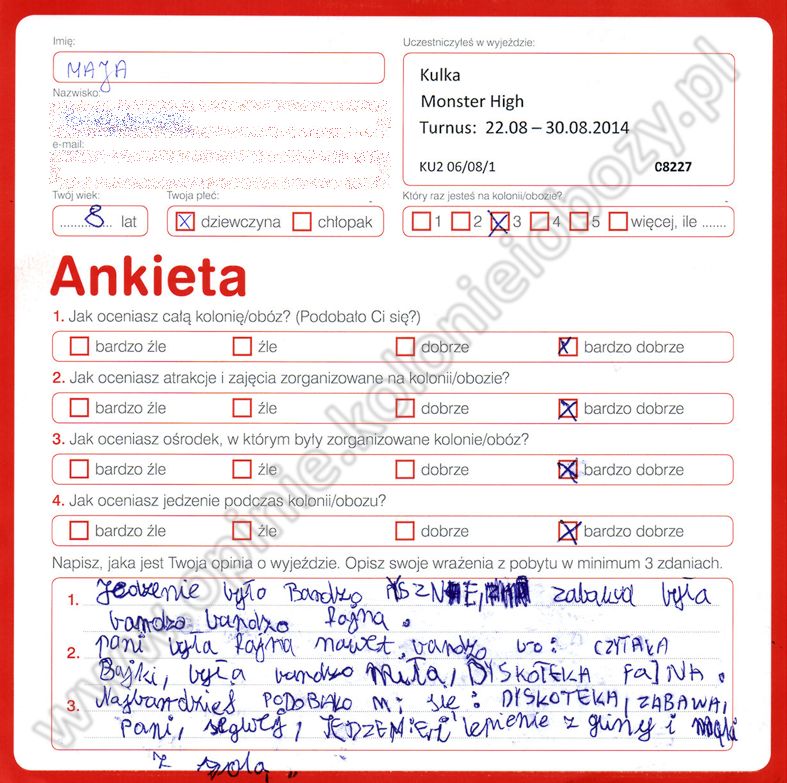 Imię:
MAJA
Nazwisko:
e-mail:
Twój wiek:
8 lat
Twoja płeć:
dziewczyna chłopak
Uczestniczyłeś w wyjeździe:
Kulka
Monster High
Turnus: 22.08 – 30.08.2014
KU2 06/08/1 C8227
Który raz jesteś na kolonii/obozie?
1 2 3 4 5 więcej, ile .......
Ankieta
1. Jak oceniasz całą kolonię/obóz? (Podobało Ci się?)
bardzo źle źle dobrze bardzo dobrze
2. Jak oceniasz atrakcje i zajęcia zorganizowane na kolonii/obozie?
bardzo źle źle dobrze bardzo dobrze
3. Jak oceniasz ośrodek, w którym były zorganizowane kolonie/obóz?
bardzo źle źle dobrze bardzo dobrze
4. Jak oceniasz jedzenie podczas kolonii/obozu?
bardzo źle źle dobrze bardzo dobrze
Napisz, jaka jest Twoja opinia o wyjeździe. Opisz swoje wrażenia z pobytu w minimum 3 zdaniach.
1. Jedzenie było Bardzo zabawa była
bardzo bardzo fajna.
2. pani była fajna nawet bardzo bo: CZYTAŁA
Bajki, była bardzo miła, DYSKOTEKA FAJNA.
3. Najbardziej PODOBAŁO mi się: DISKOTEKA, ZABAWA,
pani, segwej, JEDZENIE, i lepienie z gliny i
z
www.opinie.kolonieiobozy.pl